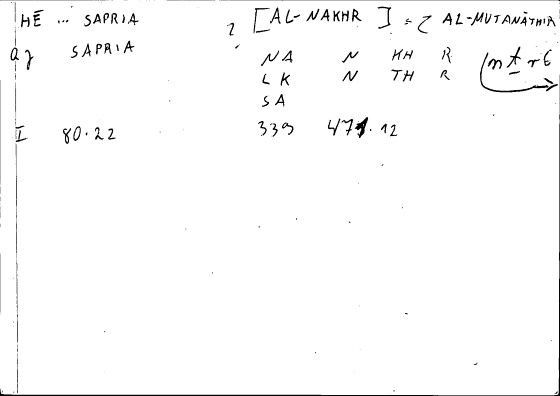 HĒ ... SAPRIA ? [AL-NAKHR] = ? AL-MUTANĀTHIR
az SAPRIA
NA N KH R (nṯr 6
LK N TH R
SA
I 80.22 339 471.12